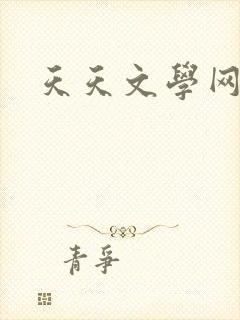 天天文學网
青爭